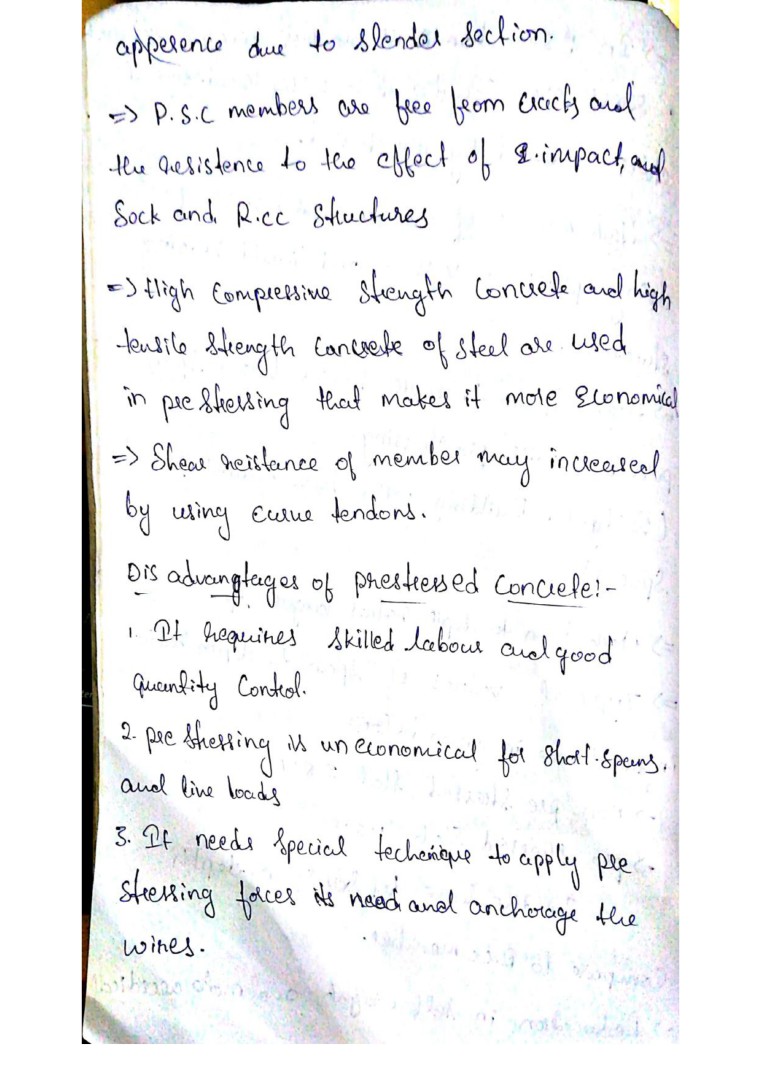 apperence due to slender section.
=> P.S.C members are free from cracks and
the resistence to the effect of impact, and
Sock and R.cc structures
=> High compressive strength concrete and high
tensile strength concrete of steel are used
in pre stressing that makes it more economical
=> Shear reistance of member may increased
by using curve tendons.
Dis advangtages of prestressed concrete:-
1. It requires skilled labour and good
quantity control.
2. pre stressing is un economical for short spans.
and live loads
3. It needs special techenique to apply pre
stressing forces its need and anchorage the
wires.